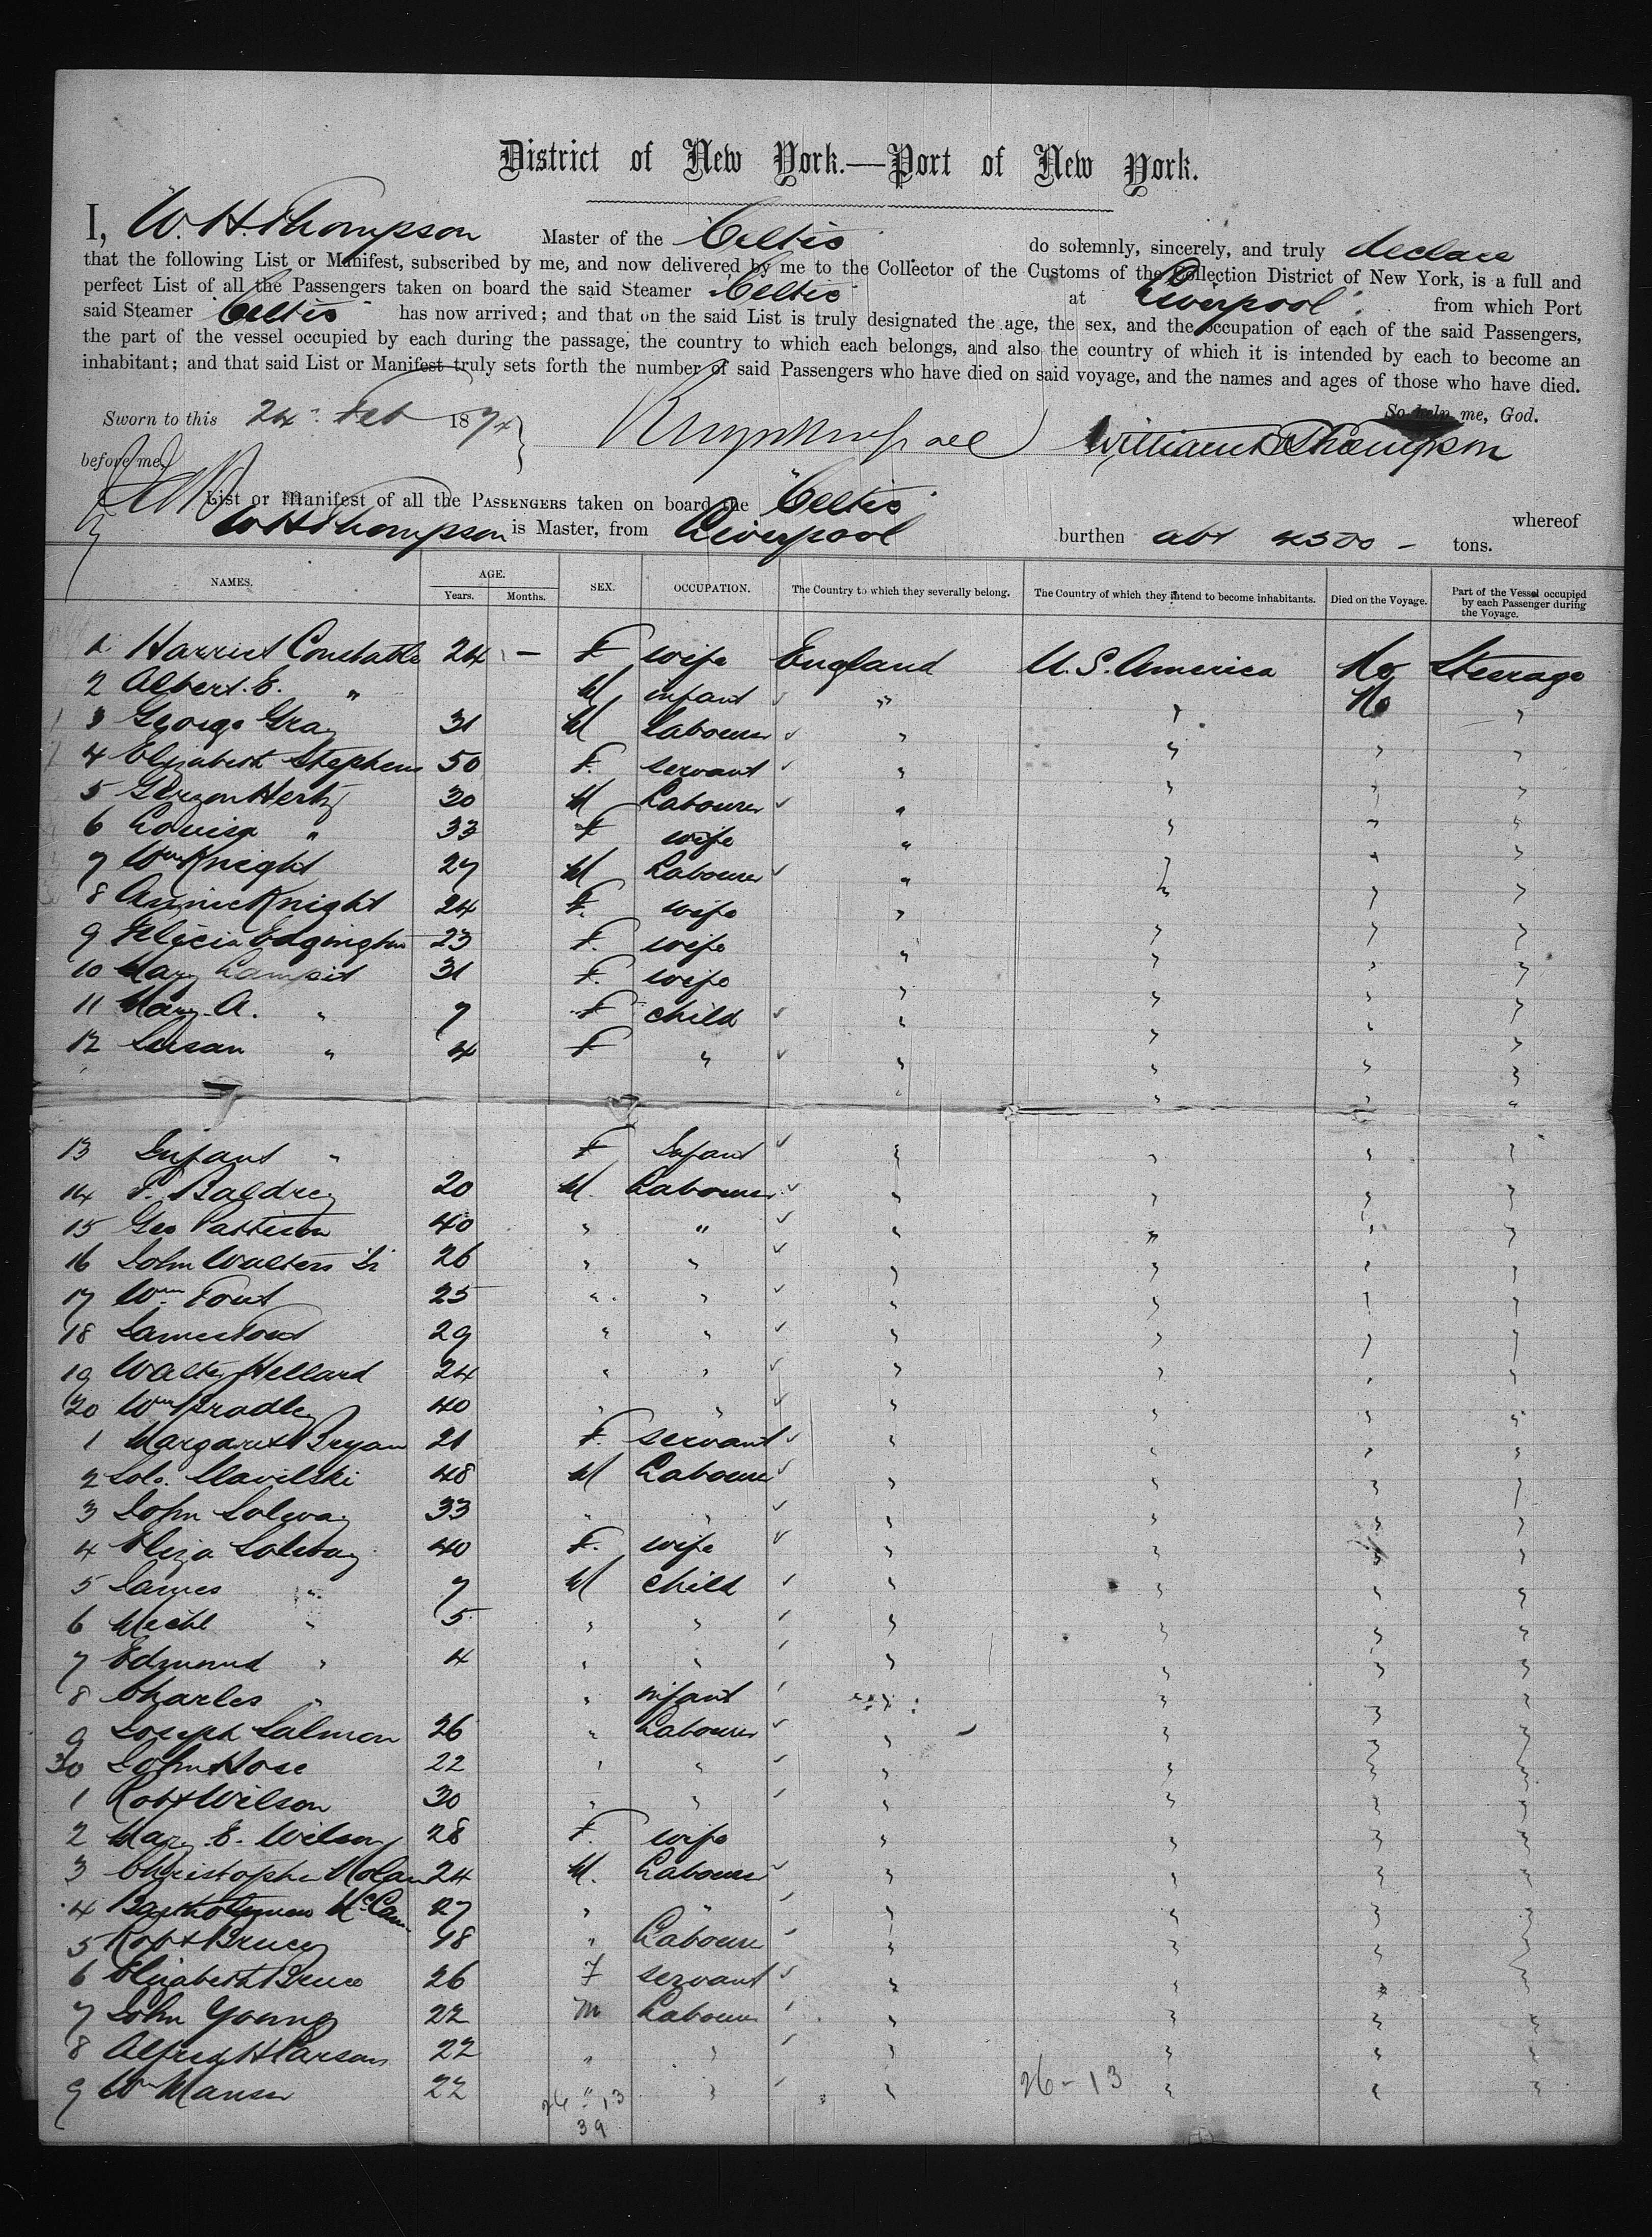 District of New York.—Port of New York.
I, W. H. Thompson Master of the "Celtic" do solemnly, sincerely, and truly declare
that the following List or Manifest, subscribed by me, and now delivered by me to the Collector of the Customs of the Collection District of New York, is a full and
perfect List of all the Passengers taken on board the said Steamer "Celtic" at Liverpool from which Port
said Steamer "Celtic" has now arrived; and that on the said List is truly designated the age, the sex, and the occupation of each of the said Passengers,
the part of the vessel occupied by each during the passage, the country to which each belongs, and also the country of which it is intended by each to become an
inhabitant; and that said List or Manifest truly sets forth the number of said Passengers who have died on said voyage, and the names and ages of those who have died.
So help me, God.
Sworn to this 24 Feb 1874 William H Thompson
before me,
List or Manifest of all the PASSENGERS taken on board the "Celtic" whereof
W H Thompson is Master, from Liverpool burthen abt 4500 - tons.
NAMES. AGE. Years. Months. SEX. OCCUPATION. The Country to which they severally belong. The Country of which they intend to become inhabitants. Died on the Voyage. Part of the Vessel occupied by each Passenger during the Voyage.
1 Harriet Constable 24 — F wife England U. S. America No Steerage
2 Albert. E. " M infant " " No "
3 George Gray 31 M Labourer " " " "
4 Elizabeth Stephens 50 F. servant " " " "
5 Hertz 30 M Labourer " " " "
6 Louisa " 33 F wife " " " "
7 Wm Knight 27 M Labourer " " " "
8 Annie Knight 24 F. wife " " " "
9 Felicia Edgington 23 F. wife " " " "
10 Mary 31 F. wife " " " "
11 Mary A. " 7 F child " " " "
12 Susan " 4 F " " " " "
13 Infant " F Infant " " " "
14 Baldrey 20 M. Labourer " " " "
15 Geo Pattison 40 " " " " " "
16 John Walters 26 " " " " " "
17 Wm Fout 25 " " " " " "
18 James Fout 29 " " " " " "
19 Walter Hellard 24 " " " " " "
20 Wm Bradley 40 " " " " " "
1 Margaret Bryan 21 F. servant " " " "
2 Solo. 48 M Labourer " " " "
3 John Solway 33 " " " " " "
4 Eliza Solway 40 F. wife " " " "
5 James " 7 M child " " " "
6 Michl " 5 " " " " " "
7 Edmund " 4 " " " " " "
8 Charles " " infant " " " "
9 Joseph Salmon 26 " Labourer " " " "
30 John Hose 22 " " " " " "
1 Robt Wilson 30 " " " " " "
2 Mary E. Wilson 28 F. wife " " " "
3 Christopher Nolan 24 M. Labourer " " " "
4 Bartholomew McCann 27 " " " " " "
5 Robt Bruce 48 " Labourer " " " "
6 Elizabeth Bruce 26 F servant " " " "
7 John Young 22 M Labourer " " " "
8 Alfred H Parsons 22 " " " " " "
9 Wm Manser 22 " " " " " "
26 - 13 26 - 13
39